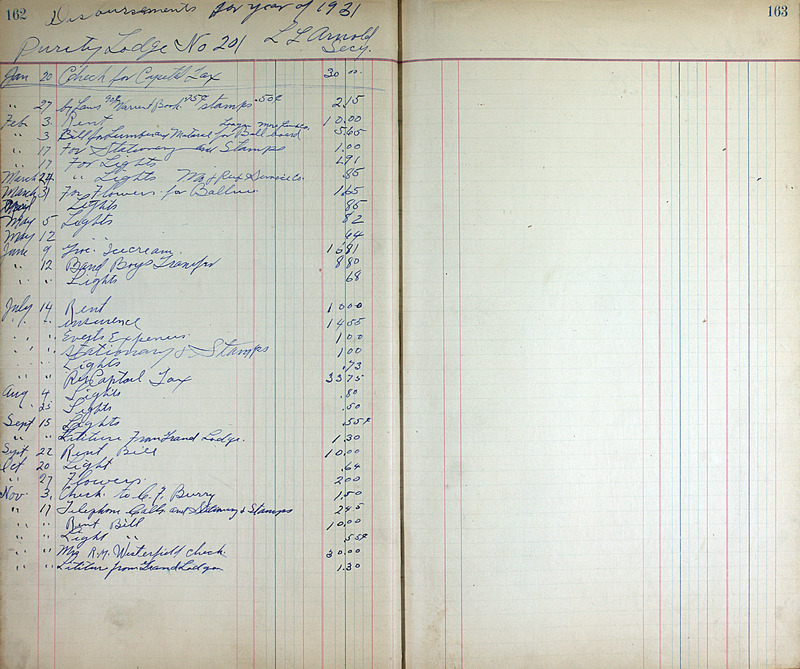 162
Disbursements for year of 1931
163
Purity Lodge No 201 L L Arnold
Secy.
Jan 20 Check for Capetel Tax 30 00
" 27 Warrent Book 75¢ stamps .50¢ 2.15
Feb 3. Rent 10.00
" 3 Bill for Lumber & Material for Ball board 5.65
" 17 For Stationary and Stamps 1.00
" 17 For Lights 1.91
March 24 " Lights .85
March 31 For Flowers for 1.65
April Lights 85
May 5 Lights 82
May 12 " " 64
June 9 Icecream 1681
" 12 Band Boys Transfer 880
" " Lights 68
July 14 Rent 1000
" " insurence 1455
" " Expences 100
" " Stationary & Stamps 100
" " Lights .73
" " Captail Tax 3375
Aug 4 Lights .80
" 25 Lights .50
Sept 15 Lights .55¢
" " Lititure From Grand Lodge. 1.30
Sept 22 Rent Bill 10.00
Oct 20 Light .64
" 27 Flowers 200
Nov 3. Check to C. F. Burry 1.50
" 17 Telephone Calls and Stationary & Stamps 245
" " Rent Bill 10.00
" " Light " .55¢
" " R.M. Westerfield check. 30.00
" " Lititure from Grand Lodge 1.30